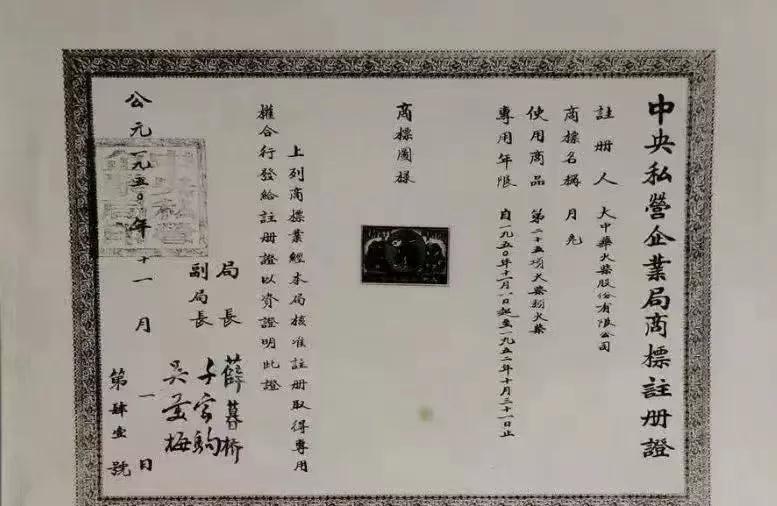 中央私營企業局商標註冊證
註冊人 大中華火柴股份有限公司
商標名稱 月光
使用商品 第二十五項火柴類火柴
專用年限 自一九五〇年十一月一日起至一九五二年十月三十一日止
商標圖樣
上列商標業經本局核准註冊取得專用
權合行發給註冊證以資證明此證
局長 薛暮橋
副局長 千家駒
吳羹梅
公元一九五〇年十一月一日
第肆壹號